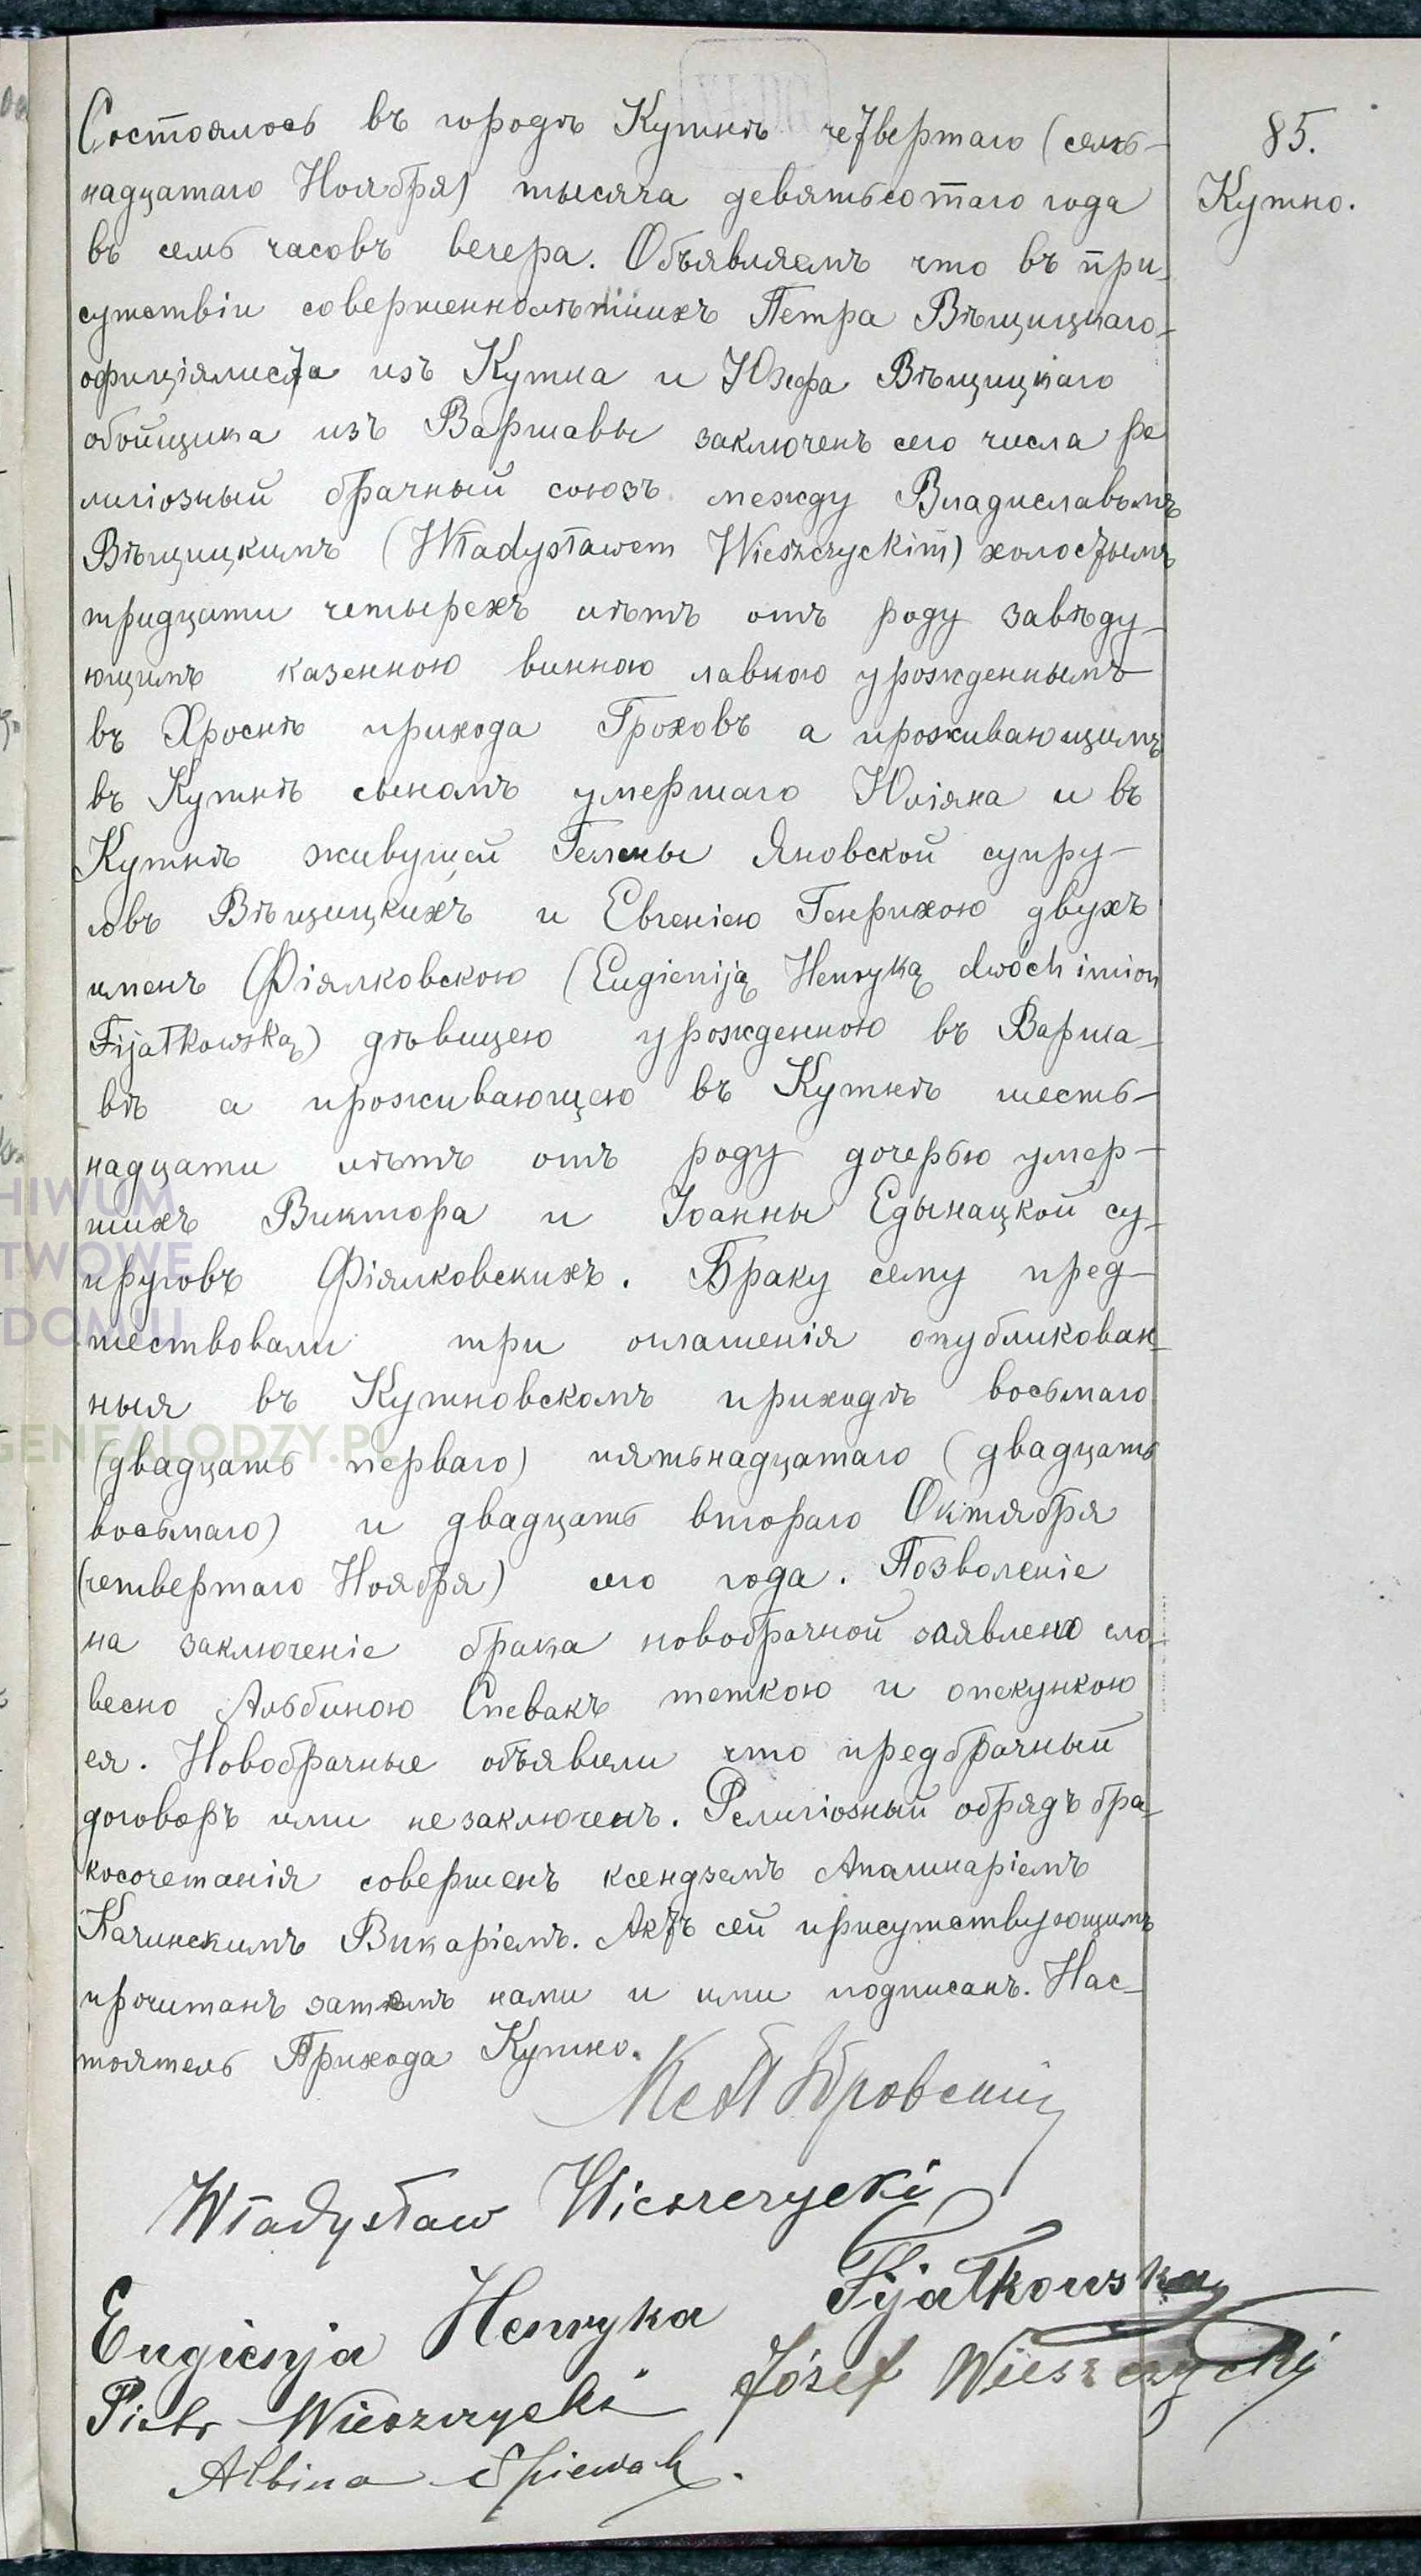 85.
Кутно.
Состоялось въ городѣ Кутнѣ четвертаго (семь-
надцатаго Ноября) тысяча девятьсотаго года
въ семь часовъ вечера. Объявляемъ что въ при-
сутствіи совершеннолѣтнихъ Петра Вѣщицкаго
официялиста изъ Кутна и Юзефа Вѣщицкаго
обойщика изъ Варшавы заключенъ сего числа ре
лигіозный брачный союзъ между Владиславомъ
Вѣщицкимъ (Władysławem Wieszczyckim) холостымъ
тридцати четырехъ лѣтъ отъ роду завѣду-
ющимъ казенною винною лавкою урожденнымъ
въ Хроснѣ прихода Гроховъ а проживающимъ
въ Кутнѣ сыномъ умершаго Юліяна и въ
Кутнѣ живущей Гелены Яновской супру-
говъ Вѣщицкихъ и Евгеніею Генрихою двухъ
именъ Фіялковскою (Eugieniją Henryką dwóch imion
Fijałkowską) дѣвицею урожденною въ Варша-
вѣ а проживающею въ Кутнѣ шесть-
надцати лѣтъ отъ роду дочерью умер-
шихъ Виктора и Іоанны Едынацкой су-
пруговъ Фіялковскихъ. Браку сему пред-
шествовали три оглашенія опубликован-
ныя въ Кутновскомъ приходѣ восьмаго
(двадцать перваго) пятьнадцатаго (двадцать
восьмаго) и двадцать втораго Октября
(четвертаго Ноября) сего года. Позволеніе
на заключеніе брака новобрачной заявлено сло-
весно Альбиною Спевакъ теткою и опекункою
ея. Новобрачные объявили что предбрачный
договоръ ими незаключенъ. Религіозный обрядъ бра-
косочетанія совершенъ ксендземъ Апалинаріемъ
Качинскимъ Викаріемъ. Актъ сей присутствующимъ
прочитанъ затѣмъ нами и ими подписанъ. Нас-
тоятель Прихода Кутно.
Władysław Wieszczycki
Eugienja Henryka Fijałkowska
Piotr Wieszczycki Józef Wieszczycki
Albina Spiewak.
HIWUM
TWOWE
DOMIU
GENEALODZY.PL